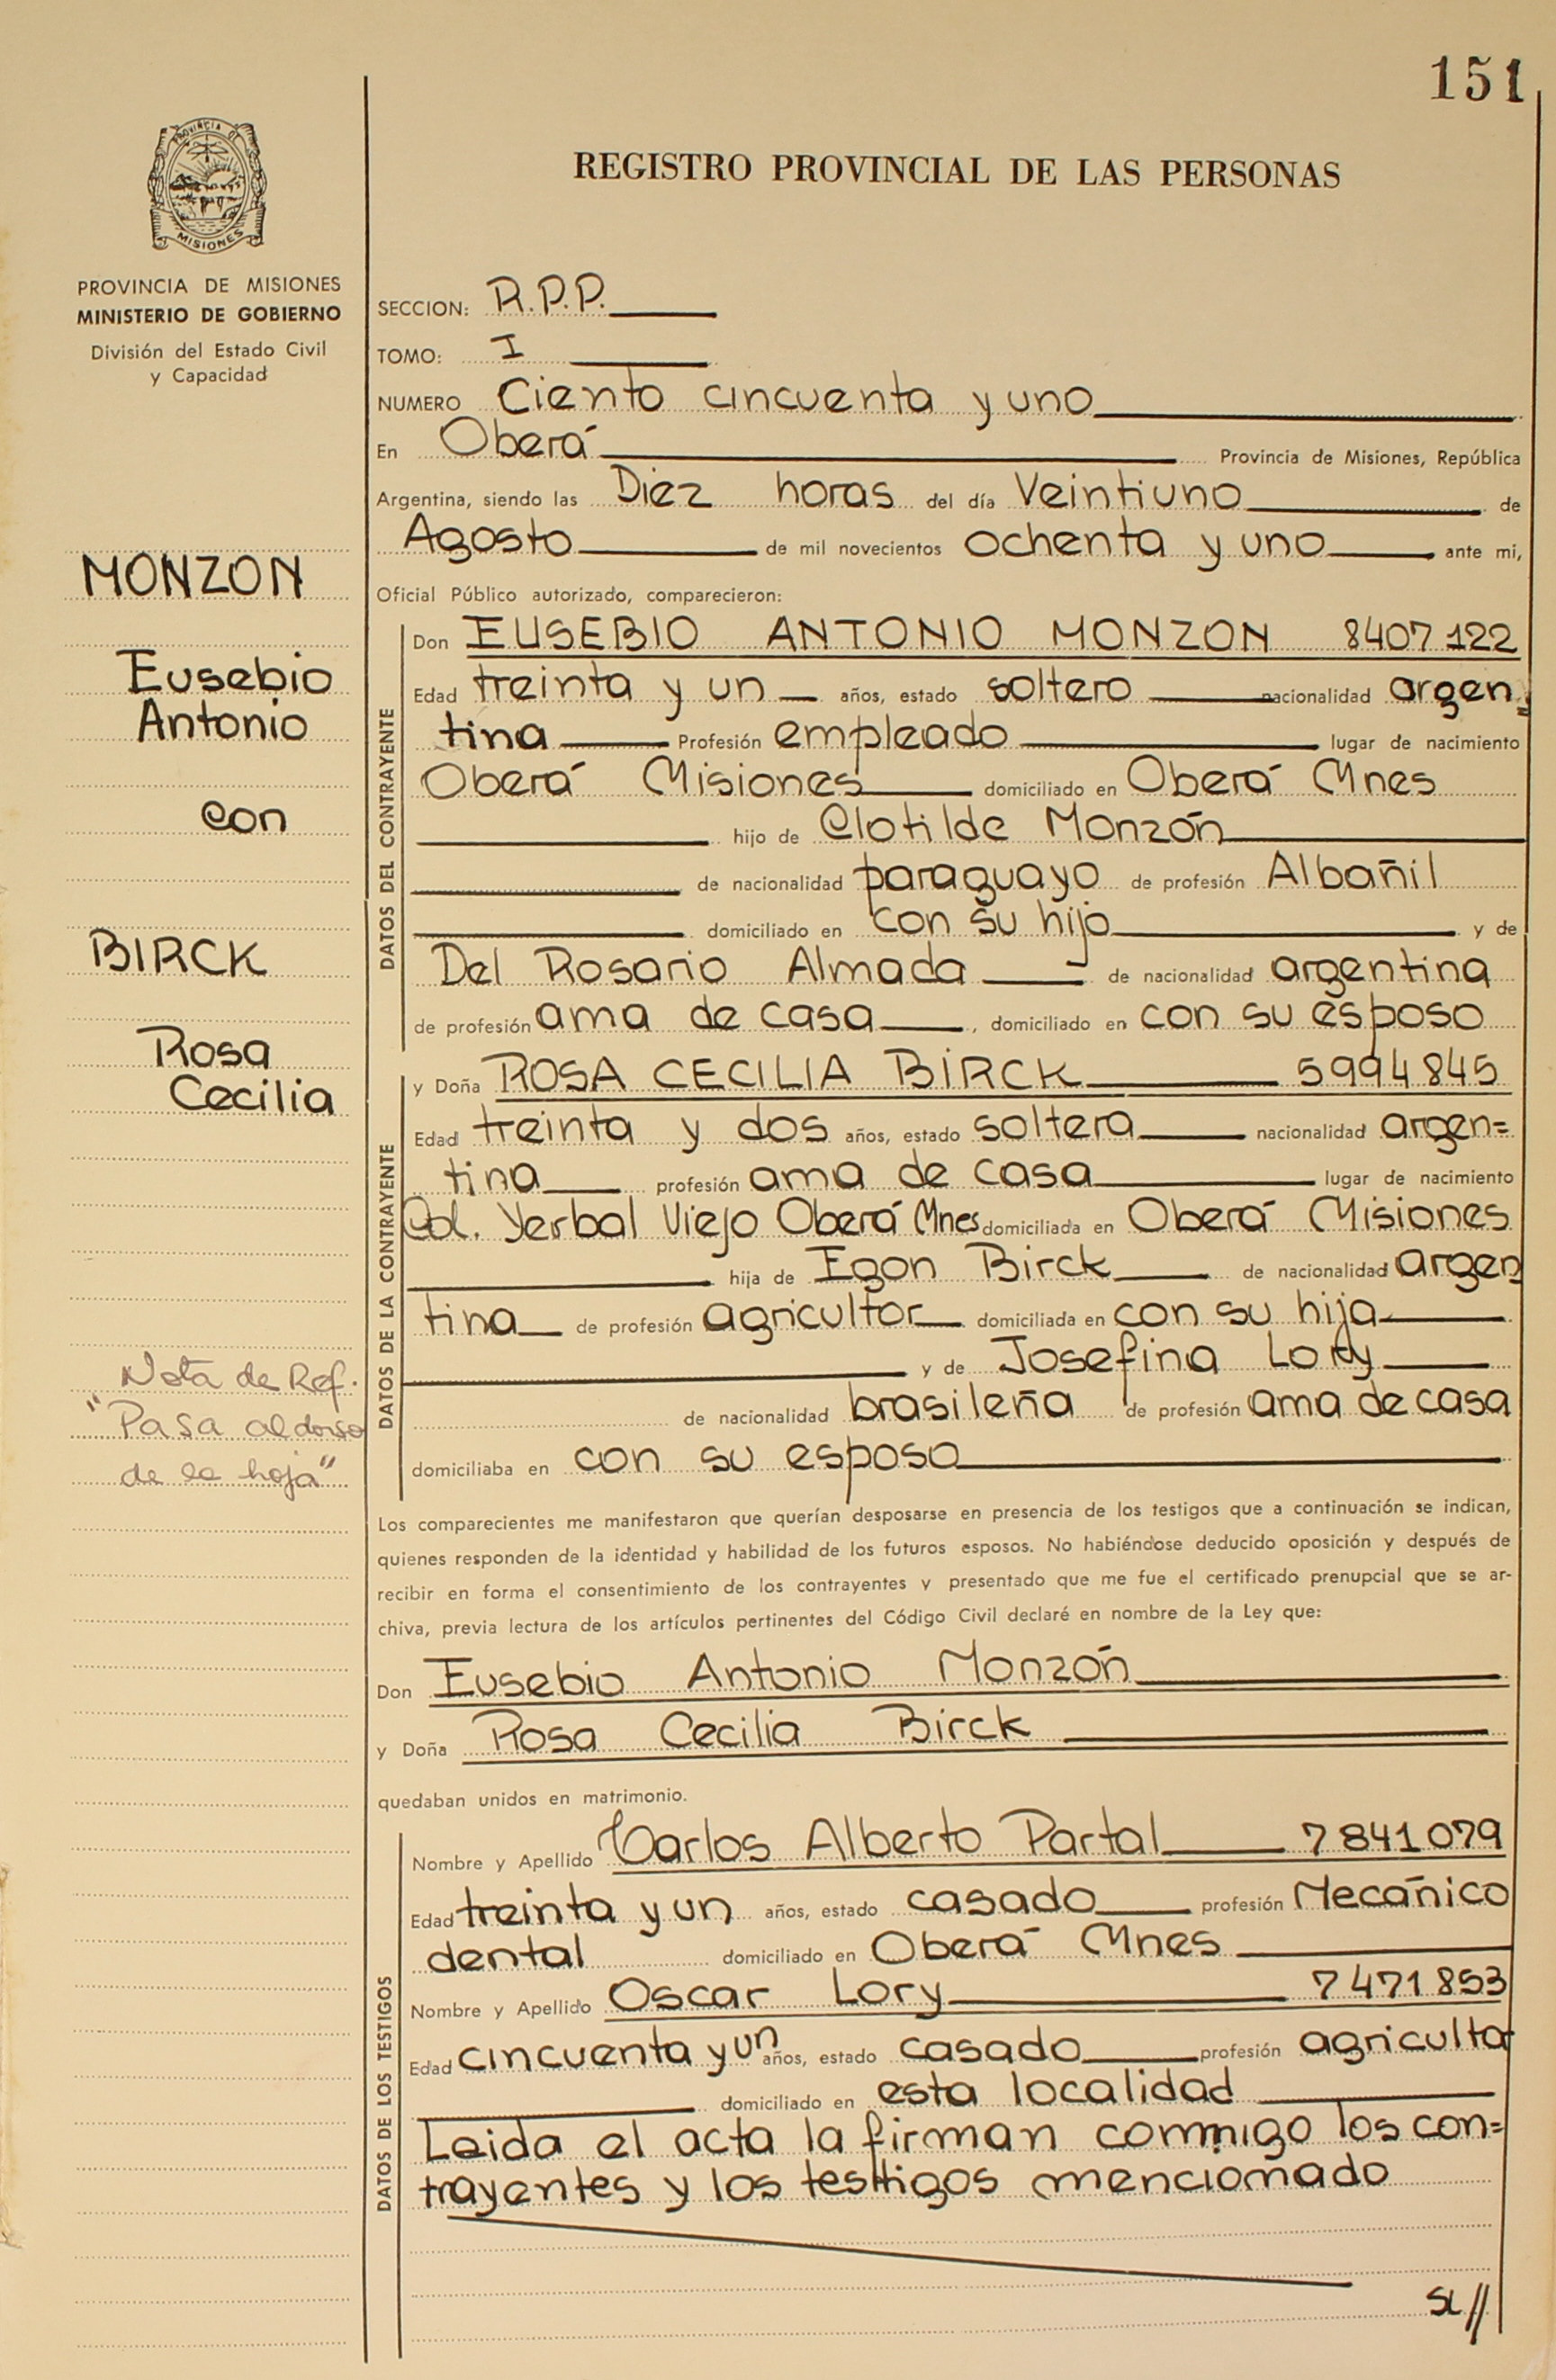 151
PROVINCIA DE
MISIONES
REGISTRO PROVINCIAL DE LAS PERSONAS
PROVINCIA DE MISIONES
MINISTERIO DE GOBIERNO
División del Estado Civil
y Capacidad
MONZON
Eusebio
Antonio
con
BIRCK
Rosa
Cecilia
Nota de Ref.
"Pasa al dorso
de la hoja"
SECCION: R.P.P.
TOMO: I
NUMERO Ciento cincuenta y uno
En Oberá Provincia de Misiones, República
Argentina, siendo las Diez horas del día Veintiuno de
Agosto de mil novecientos ochenta y uno ante mi,
Oficial Público autorizado, comparecieron:
DATOS DEL CONTRAYENTE
Don EUSEBIO ANTONIO MONZON 8407122
Edad treinta y un años, estado soltero nacionalidad argen=
tina Profesión empleado lugar de nacimiento
Oberá Misiones domiciliado en Oberá Mnes
hijo de Clotilde Monzón
de nacionalidad paraguayo de profesión Albañil
domiciliado en con su hijo y de
Del Rosario Almada de nacionalidad argentina
de profesión ama de casa, domiciliado en con su esposo
DATOS DE LA CONTRAYENTE
y Doña ROSA CECILIA BIRCK 5994845
Edad treinta y dos años, estado soltera nacionalidad argen=
tina profesión ama de casa lugar de nacimiento
Col. Yerbal Viejo Oberá Mnes domiciliada en Oberá Misiones
hija de Egon Birck de nacionalidad argen
tina de profesión agricultor domiciliada en con su hija
y de Josefina Lory
de nacionalidad brasileña de profesión ama de casa
domiciliaba en con su esposo
Los comparecientes me manifestaron que querían desposarse en presencia de los testigos que a continuación se indican,
quienes responden de la identidad y habilidad de los futuros esposos. No habiéndose deducido oposición y después de
recibir en forma el consentimiento de los contrayentes y presentado que me fue el certificado prenupcial que se ar-
chiva, previa lectura de los artículos pertinentes del Código Civil declaré en nombre de la Ley que:
Don Eusebio Antonio Monzón
y Doña Rosa Cecilia Birck
quedaban unidos en matrimonio.
DATOS DE LOS TESTIGOS
Nombre y Apellido Carlos Alberto Partal 7841079
Edad treinta y un años, estado casado profesión Mecánico
dental domiciliado en Oberá Mnes
Nombre y Apellido Oscar Lory 7471853
Edad cincuenta y un años, estado casado profesión agricultor
domiciliado en esta localidad
Leida el acta la firman conmigo los con=
trayentes y los testigos mencionado
SL//